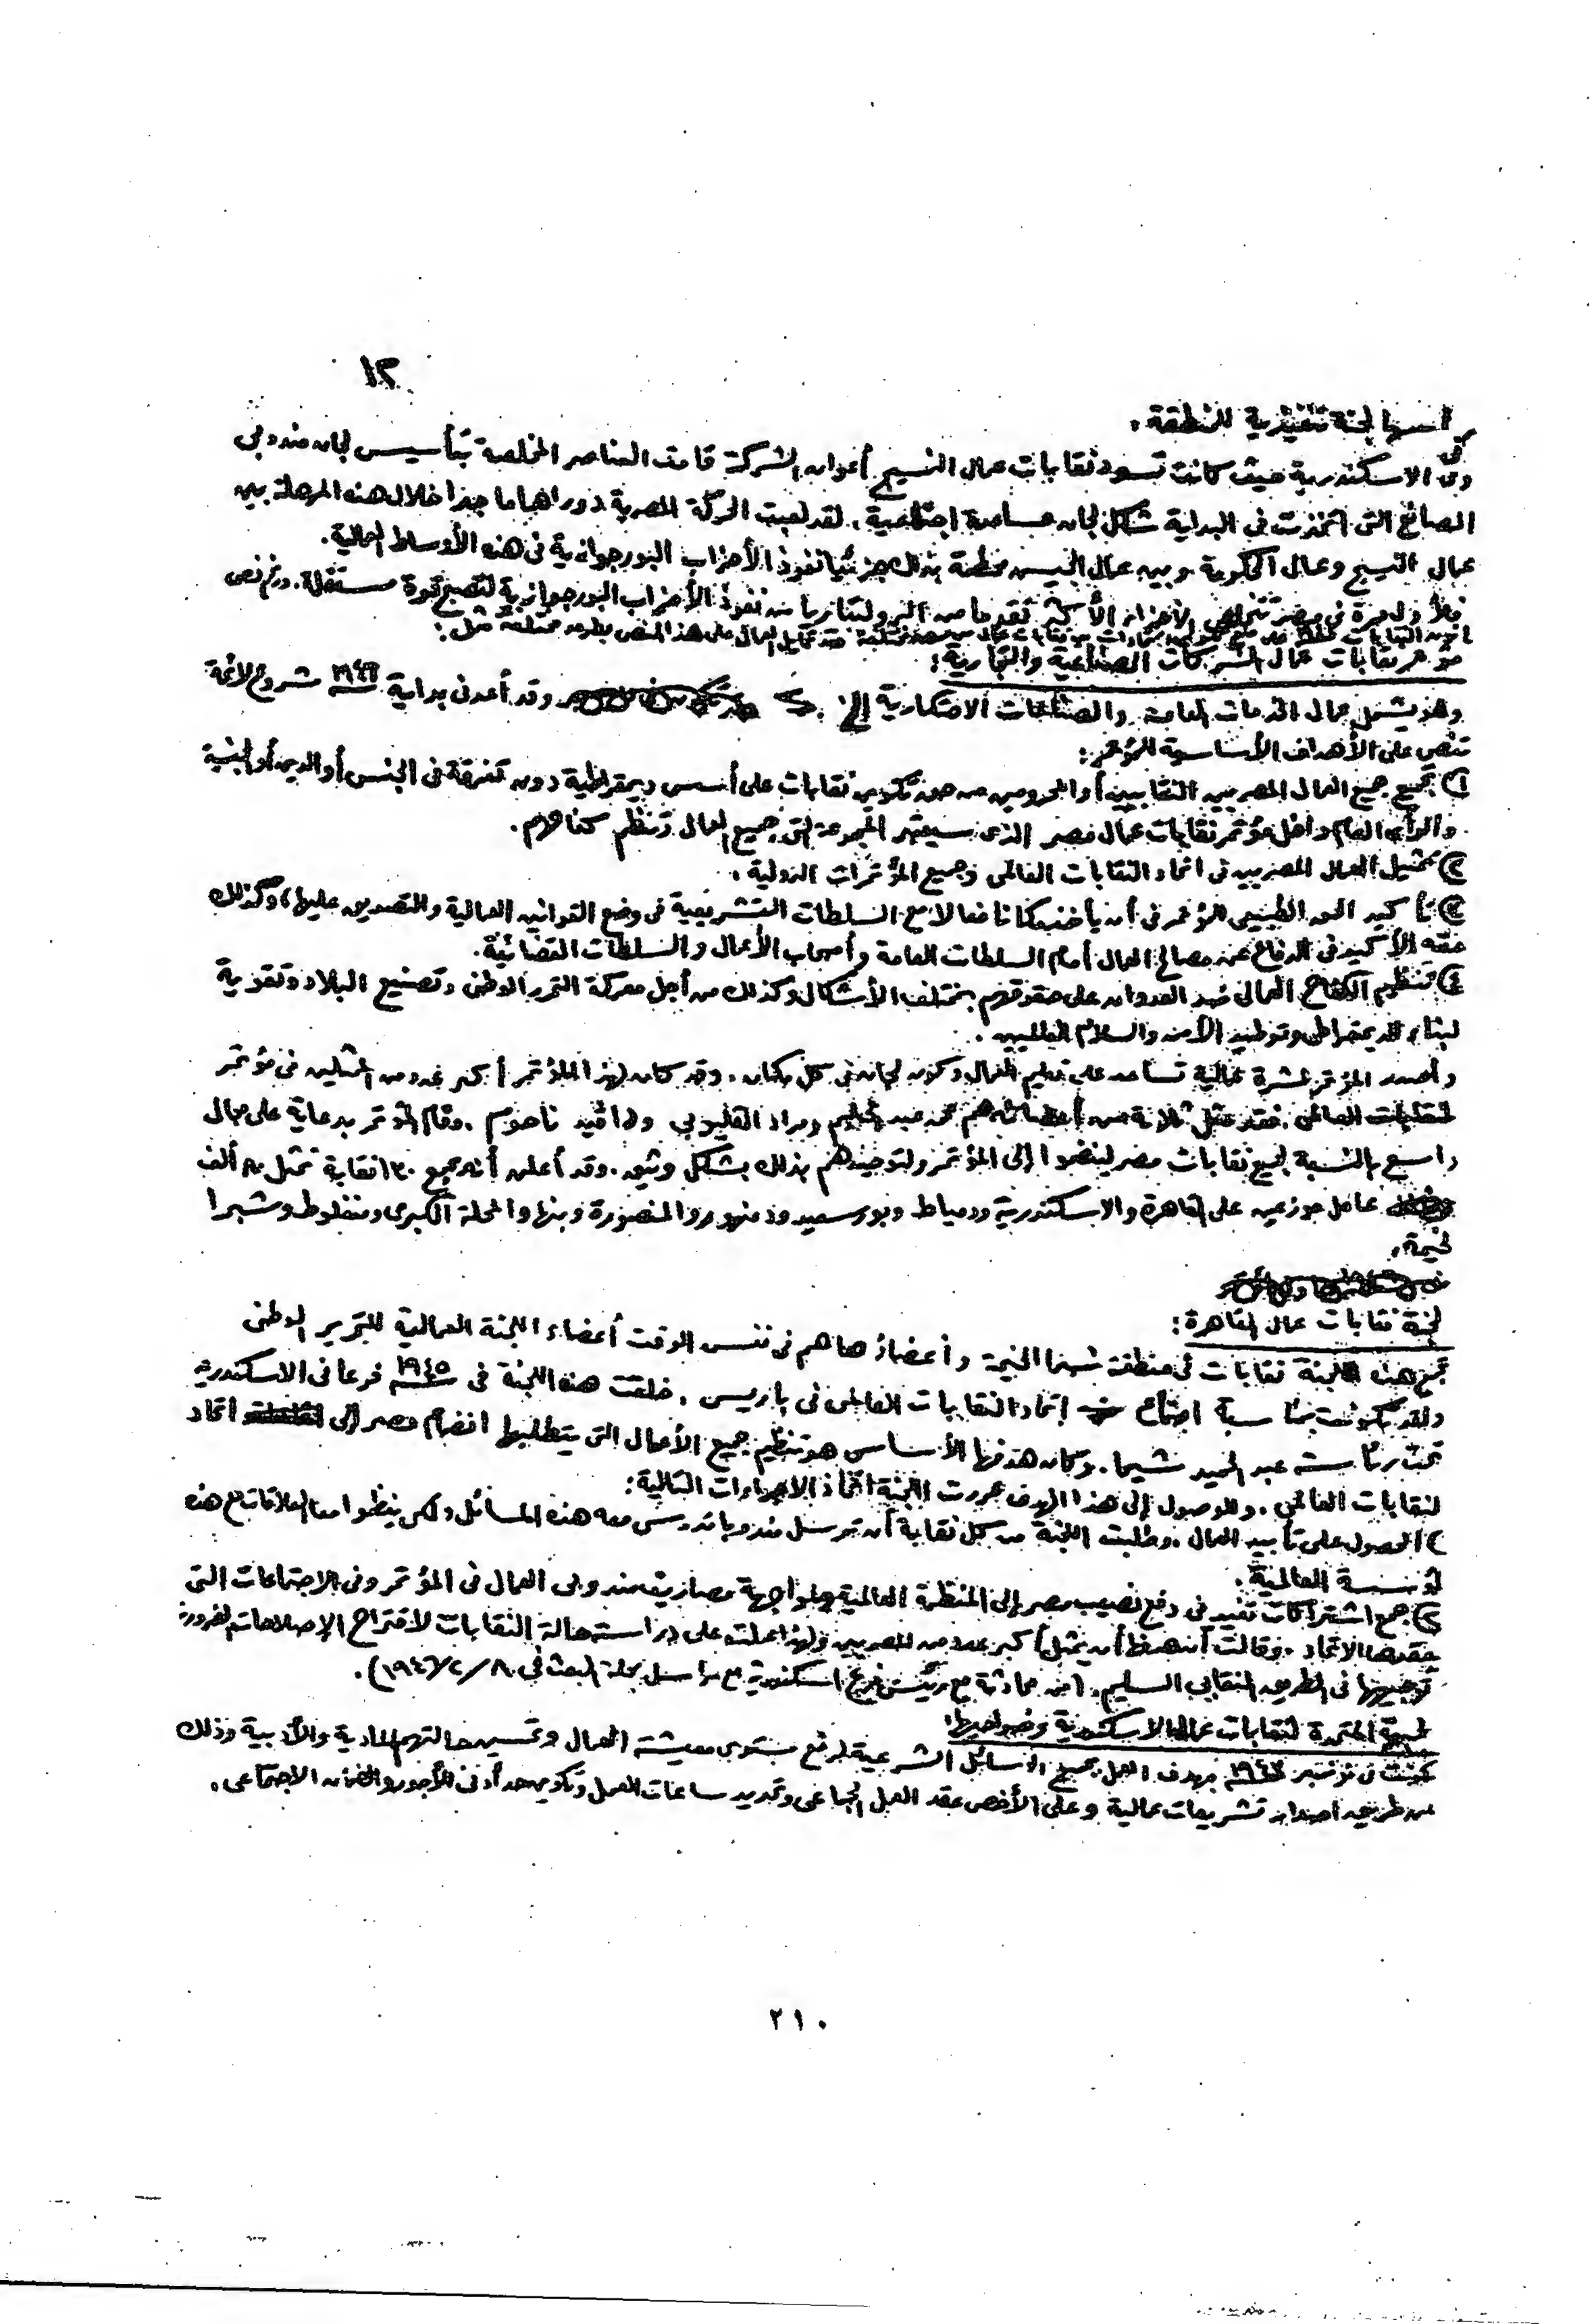 ١٢
أسسها لجنة تنفيذية للمنطقة.
وفى الاسكندرية حيث كانت تسود نقابات عمال النسيج أعوان الشركة قامت العناصر المخلصة بتأسيس لجان مندوبى
المصانع التى اتخذت فى البداية شكل لجان مساعدة اجتماعية. لقد لعبت الحركة المصرية دورا هاما جدا خلال هذه المرحلة بين
عمال النسيج وعمال الحكومة وبين عمال الجيش محطمة بذلك جزئيا نفوذ الأحزاب البورجوازية فى هذه الأوساط العمالية.
فلأول مرة فى مصر تتخلص الأجزاء الأكثر تقدما من البروليتاريا من نفوذ الأحزاب البورجوازية لتصبح قوة مستقلة. ورغم نص
قانون النقابات على هذا النص بطرق مختلفة مثل:
مؤتمر نقابات عمال الشركات الصناعية والتجارية:
وهو يشمل عمال الخدمات العامة والصناعات الاحتكارية إلخ. وقد أعد فى بداية ١٩٤٦ مشروع لائحة
تنص على الأهداف الأساسية للمؤتمر:
١) تجميع جميع العمال المصريين النقابيين أو المحرومين من حق تكوين نقابات على أسس ديمقراطية دون تفرقة فى الجنس أو الدين أو الجنسية
والرأى العام داخل مؤتمر نقابات عمال مصر الذى سيعتبر المجموعة التى جميع العمال وتنظم كفاحهم.
٢) تمثيل العمال المصريين فى اتحاد النقابات العالمى وجميع المؤتمرات الدولية.
٣) تأكيد الحق الطبيعى للمؤتمر فى أن يأخذ مكانا فعالا مع السلطات التشريعية فى وضع القوانين العمالية والتصديق عليها، وكذلك
حقه الأكيد فى الدفاع عن مصالح العمال أمام السلطات العامة وأصحاب الأعمال والسلطات القضائية.
٤) تنظيم الكفاح العمالى ضد العدوان على حقوقهم بمختلف الأشكال وكذلك من أجل معركة التحرر الوطنى وتصنيع البلاد وتقوية
البناء الديمقراطى وتوطيد الأمن والسلام العالميين.
وأصدر المؤتمر نشرة عمالية تساعد على تنظيم العمال وكون لجان فى كل مكان. وقد كان لهذا المؤتمر أكبر عدد من الممثلين فى مؤتمر
النقابات العالمى. فقد مثل ثلاثة من أعضائه هم محمد عبد الحليم ومراد القليوبى ودافيد ناحوم. وقام المؤتمر بدعاية على مجال
واسع بالنسبة لجميع نقابات مصر لينضموا إلى المؤتمر ولتوحيدهم بذلك بشكل وثيق. وقد أعلن أنه يجمع ١٣٠ نقابة تمثل ٨٠ ألف
عامل موزعين على القاهرة والاسكندرية ودمياط وبورسعيد ودمنهور والمنصورة وبنها والمحلة الكبرى ومنفلوط وشبرا
الخيمة.
لجنة نقابات عمال القاهرة:
تجمع هذه اللجنة نقابات فى منطقة شبرا الخيمة وأعضاؤها هم فى نفس الوقت أعضاء اللجنة العمالية للتحرير الوطنى
ولقد تكونت بمناسبة اجتماع اتحاد النقابات العالمى فى باريس. خلقت هذه اللجنة فى ١٩٤٥ فرعا فى الاسكندرية
تحت رئاسة عبد الحميد شيحا. وكان هدفها الأساسى هو تنظيم جميع الأعمال التى يتطلبها انضمام مصر إلى اتحاد
النقابات العالمى. وللوصول إلى هذا الهدف قررت اللجنة اتخاذ الإجراءات التالية:
١) الحصول على تأييد العمال. وطلبت اللجنة من كل نقابة أن ترسل مندوبا تدرس معه هذه المسائل ولكى ينظموا معا العلاقات مع هذه
المؤسسة العالمية.
٢) جمع اشتراكات تفيد فى دفع نصيب مصر إلى المنظمة العالمية ولمواجهة مصاريف مندوبى العمال فى المؤتمر وفى الاجتماعات التى
يعقدها الاتحاد. وقالت أن يمثل أكبر عدد من المصريين ولهذا عملت على دراسة حالة النقابات لاقتراح الإصلاحات الضرورية
توجيهها فى الطريق النقابى السليم. (من محادثة مع رئيس فرع اسكندرية مع مراسل مجلة البعث فى ٨/٢/١٩٤٦).
الجبهة المتحدة لنقابات عمال الاسكندرية وضواحيها:
تكونت فى نوفمبر بهدف العمل بجميع الوسائل الشرعية لرفع مستوى معيشة العمال وتحسين حالتهم المادية والأدبية وذلك
عن طريق اصدار تشريعات عمالية وعلى الأخص عقد العمل الجماعى وتحديد ساعات العمل وتكوين حد أدنى للأجور والضمان الاجتماعى.
٢١٠